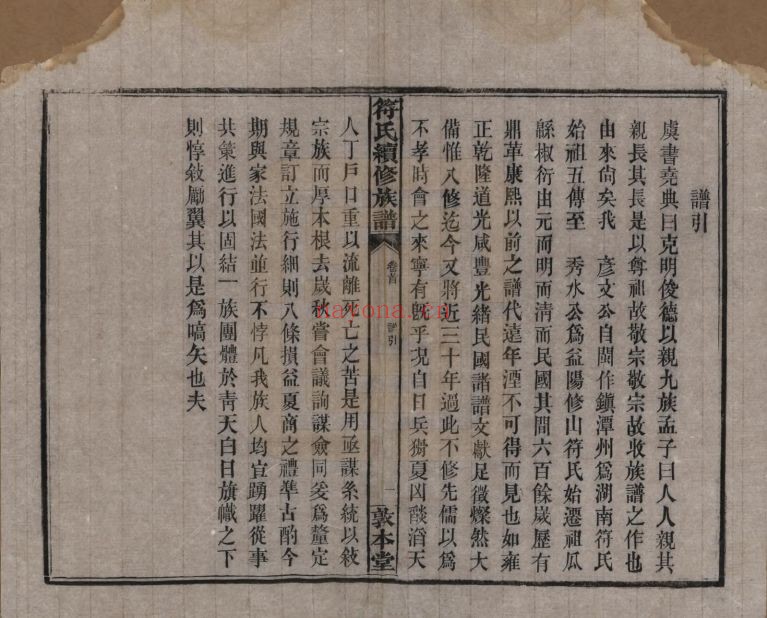 譜引
虞書堯典曰克明俊德以親九族孟子曰人人親其
親長其長是以尊祖故敬宗敬宗故收族譜之作也
由來尙矣我 彥文公自閩作鎭潭州爲湖南符氏
始祖五傳至 秀水公爲益陽修山符氏始遷祖瓜
緜椒衍由元而明而清而民國其間六百餘歲歷有
鼎革康熙以前之譜代遠年湮不可得而見也如雍
正乾隆道光咸豐光緒民國諸譜文獻足徵燦然大
備惟八修迄今又將近三十年過此不修先儒以爲
不孝時會之來寧有旣乎況自日兵猾夏凶燄滔天
符氏續修族譜
卷首
譜引
一
敦本堂
人丁戶口重以流離死亡之苦是用亟謀系統以敍
宗族而厚本根去歲秋嘗會議詢謀僉同爰爲釐定
規章訂立施行細則八條損益夏商之禮準古酌今
期與家法國法並行不悖凡我族人均宜踴躍從事
共策進行以固結一族團體於靑天白日旗幟之下
則惇敍勵翼其以是爲嚆矢也夫
nayona.cn